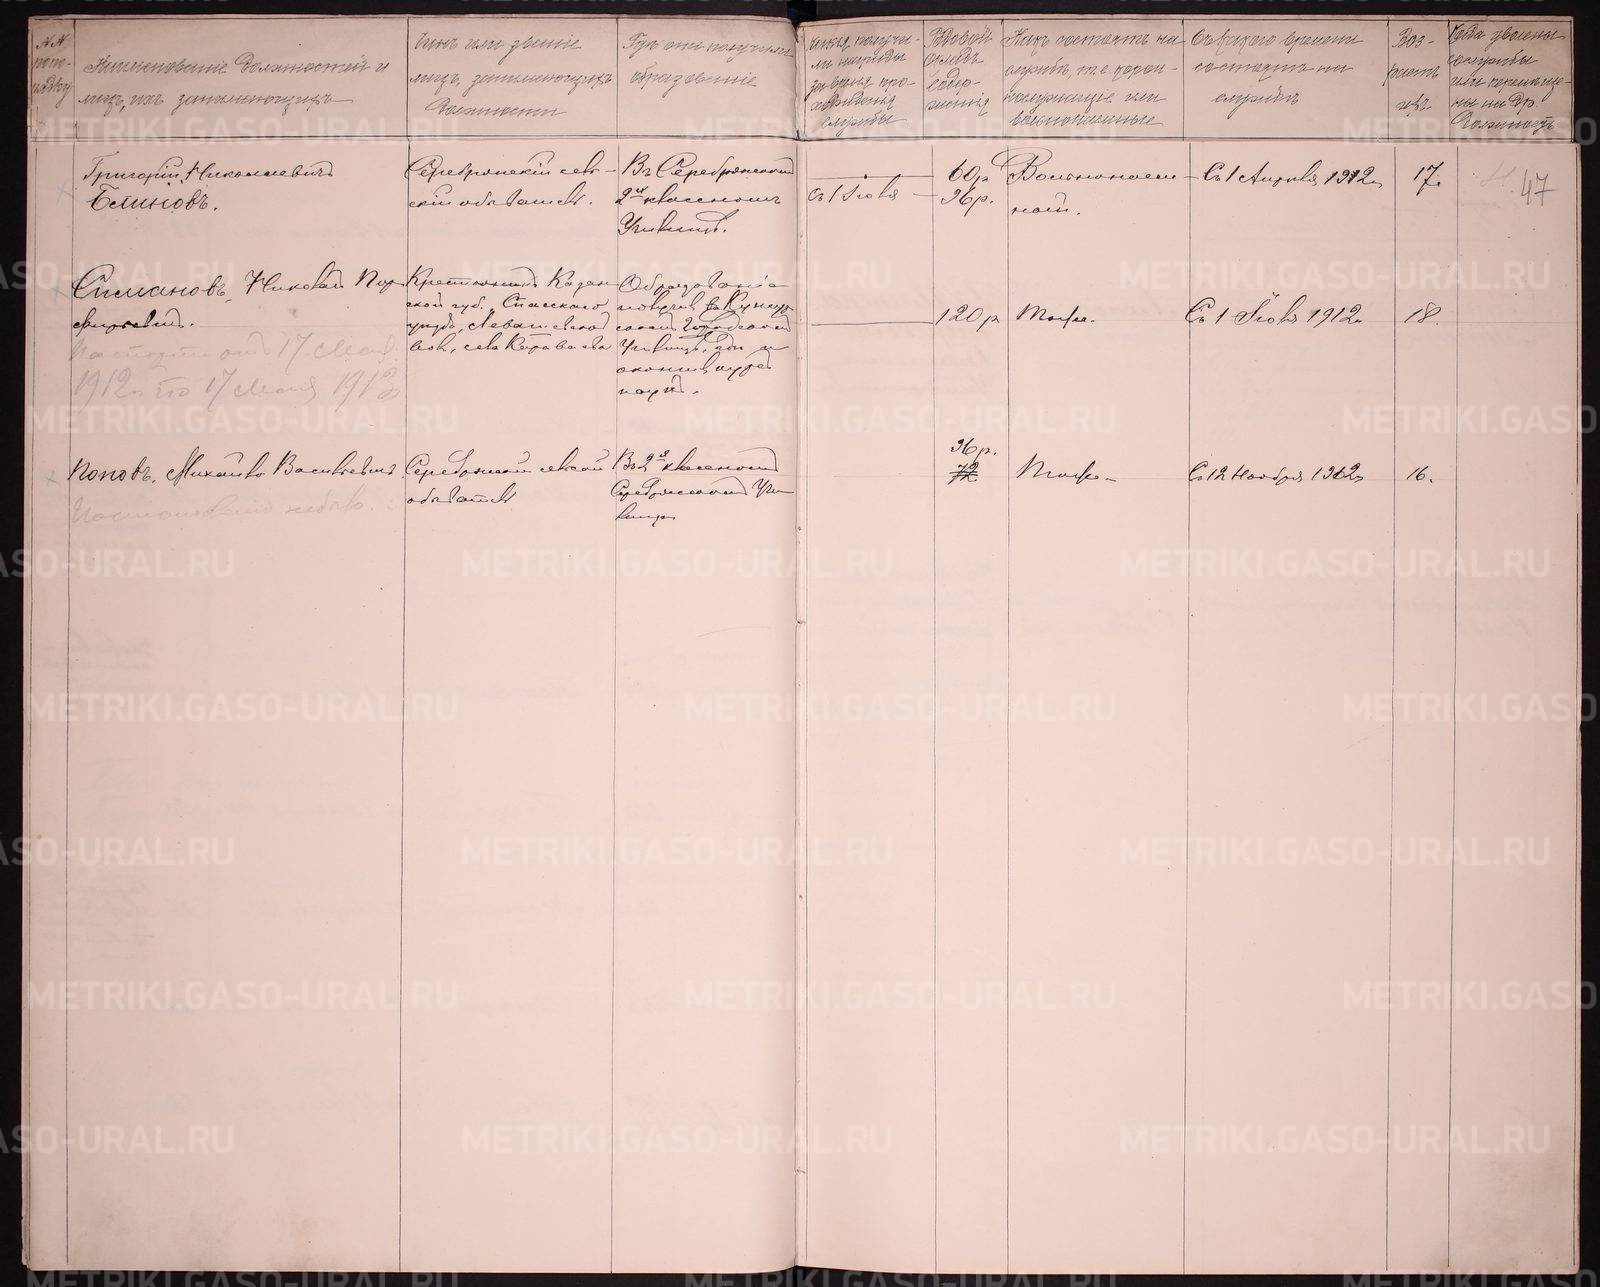 №№
по по-
рядку
Наименованіе должностей и
лицъ, ихъ занимающихъ
Чинъ или званіе
лицъ, занимающихъ
должности
Гдѣ они получили
образованіе
Какія получи-
ли награды
за время про-
хожденія
службы
Годовой
окладъ
содер-
жанія
Какъ состоятъ на
службѣ, т.е. корон-
нослужащіе или
вольнонаемные
Съ какого времени
состоятъ на
службѣ
Воз-
растъ
ихъ
Когда уволены
со службы
или перемѣще-
ны на др.
должность
47
Григорій Николаевичъ
Блиновъ.
Серебрянскій сель-
скій обыватель.
Въ Серебрянскомъ
2хъ классномъ
Училищѣ.
съ 1 Іюля
60р
96р.
Вольнонаем-
ный.
Съ 1 Апрѣля 1912г.
17.
Симановъ, Николай Пор-
фирьевичъ.
Паспортъ отъ 17 Мая
1912г. по 17 Мая 1913
Крестьянинъ Казан
ской губ. Спасскаго
уѣзда, Левашевской
вол., села Караваева
Образованіе
получилъ въ Кунгур
скомъ Городскомъ
Училищѣ, гдѣ и
окончилъ курсъ
наукъ.
120р
Тоже.
Съ 1 Іюля 1912г.
18.
Поповъ, Михаилъ Васильевичъ
Серебрянскій сельскій
обыватель
Въ 2хъ классномъ
Серебрянскомъ Учи-
лищѣ
96р.
72
Тоже.
Съ 12 Ноября 1912г.
16.
METRIKI.GASO-URAL.RU